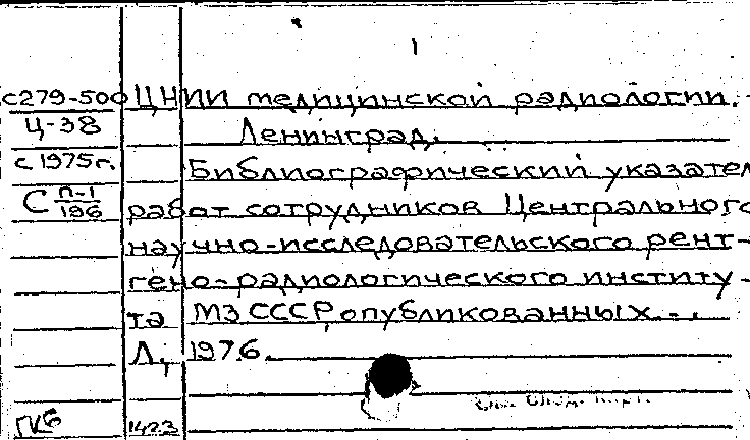 1
с279-500 ЦНИИ медицинской радиологии.
Ц-38 Ленинград.
с 1975г. Библиографический указател
С п-1/196 работ сотрудников Центрального
научно-исследовательского рент-
гено-радиологического институ-
та МЗ СССР, опубликованных...
Л., 1976.
ГКБ 1423